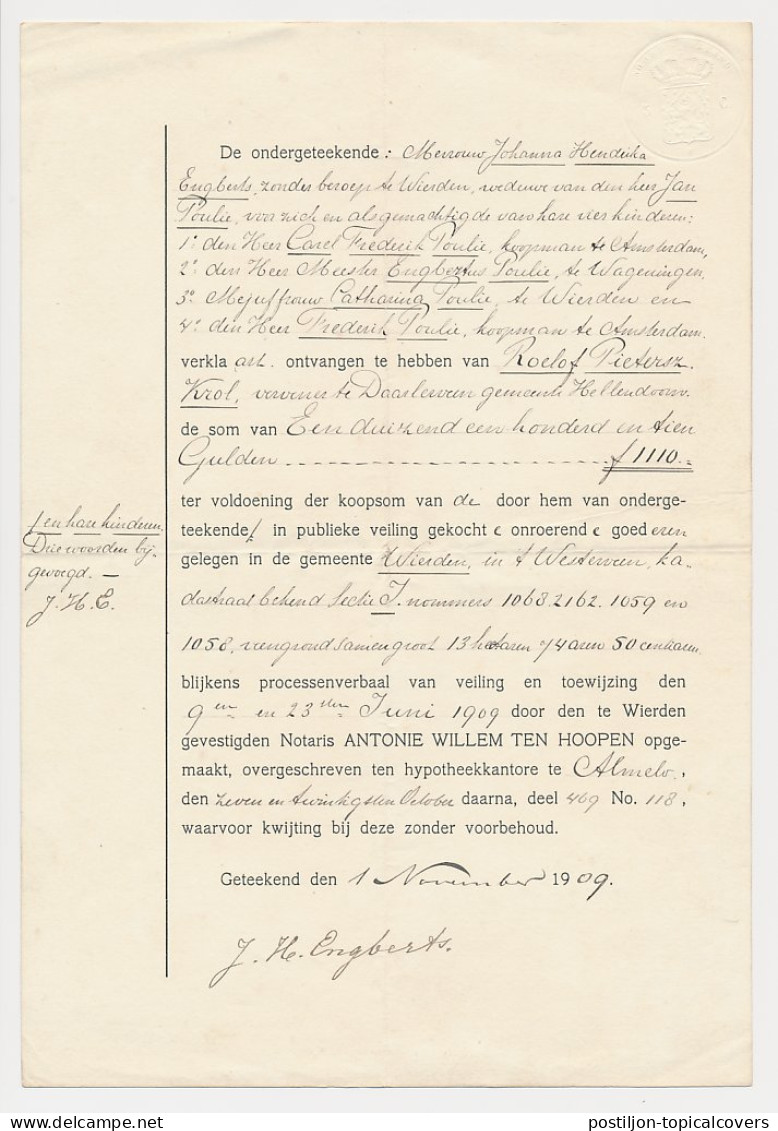 De ondergeteekende: Mevrouw Johanna Hendrika
Engberts, zonder beroep te Wierden, weduwe van den heer Jan
Poulie, voor zich en als gemachtigde van hare vier kinderen:
1º den Heer Carel Frederik Poulie, koopman te Amsterdam,
2º den Heer Meester Engbertus Poulie, te Wageningen,
3º Mejuffrouw Catharina Poulie, te Wierden en
4º den Heer Frederik Poulie, koopman te Amsterdam.
verkla art. ontvangen te hebben van Roelof Pietersz.
Krol, vervener te Daarlerveen gemeente Hellendoorn.
de som van Een duizend een honderd en tien
Gulden ------------------ f 1110.-
ter voldoening der koopsom van de door hem van onderge-
teekende / in publieke veiling gekochte onroerende goederen
gelegen in de gemeente Wierden, in 't Westerveen, ka-
dastraal bekend Sectie I. nommers 1063. 2162. 1059 en
1058, veengrond samen groot 13 hectaren 74 aren 50 centiaren
blijkens processenverbaal van veiling en toewijzing den
9en en 23sten Juni 1909 door den te Wierden
gevestigden Notaris ANTONIE WILLEM TEN HOOPEN opge-
maakt, overgeschreven ten hypotheekkantore te Almelo.,
den zeven en twintigsten October daarna, deel 469 No. 118,
waarvoor kwijting bij deze zonder voorbehoud.
Geteekend den 1 November 1909.
J. H. Engberts.
/ en hare kinderen.
Drie woorden bij-
gevoegd. —
J. H. E.
postiljon-topicalcovers